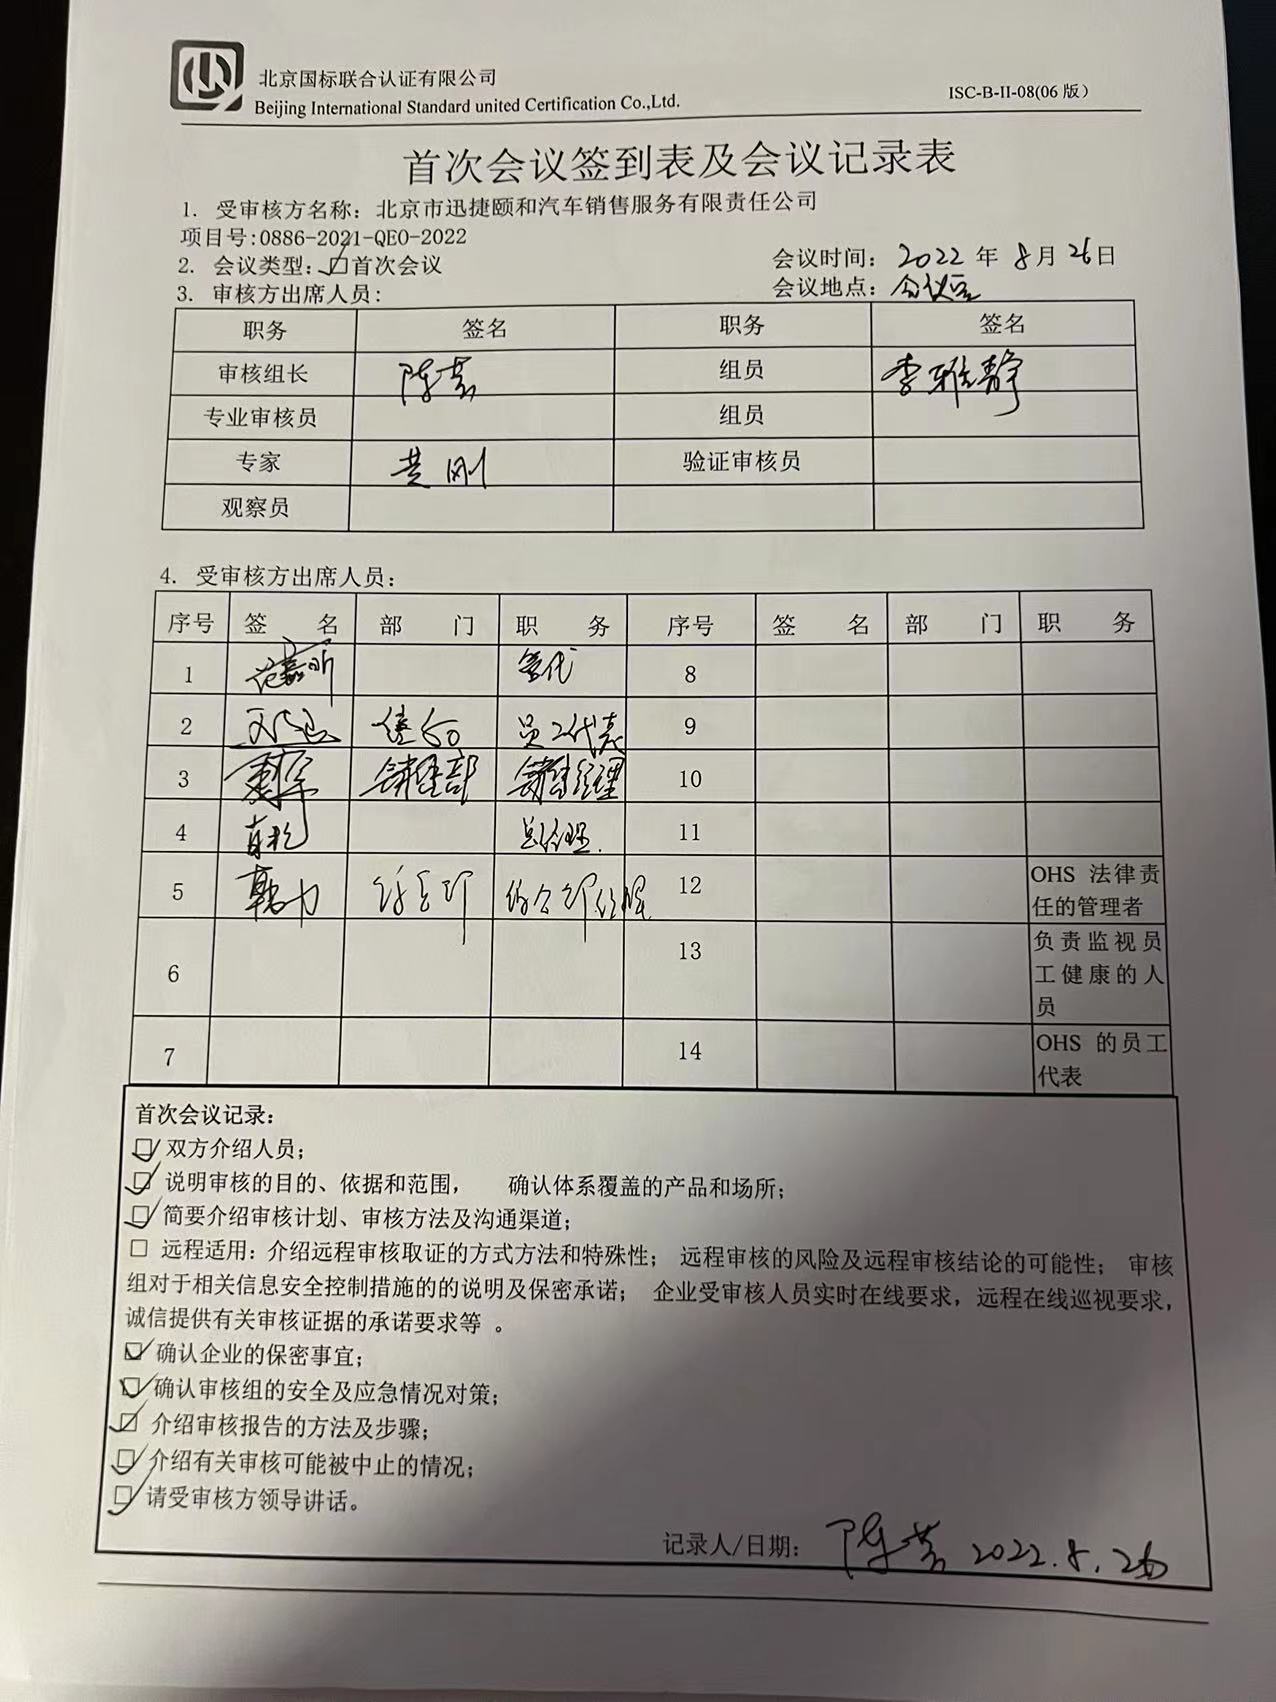 北京国标联合认证有限公司
Beijing International Standard united Certification Co.,Ltd.
ISC-B-II-08(06 版)
首次会议签到表及会议记录表
1. 受审核方名称：北京市迅捷颐和汽车销售服务有限责任公司
项目号:0886-2021-QEO-2022
2. 会议类型：☑首次会议 会议时间：2022 年 8月 26日
3. 审核方出席人员： 会议地点：会议室
职务 签名 职务 签名
审核组长 组员 李雅静
专业审核员 组员
专家 黄刚 验证审核员
观察员
4. 受审核方出席人员：
序号 签 名 部 门 职 务 序号 签 名 部 门 职 务
1 管代 8
2 员工代表 9
3 销售部 销售经理 10
4 总经理. 11
5 12 OHS 法律责任的管理者
6 13 负责监视员工健康的人员
7 14 OHS 的员工代表
首次会议记录：
☑ 双方介绍人员；
☑ 说明审核的目的、依据和范围， 确认体系覆盖的产品和场所；
☑ 简要介绍审核计划、审核方法及沟通渠道；
□ 远程适用：介绍远程审核取证的方式方法和特殊性； 远程审核的风险及远程审核结论的可能性； 审核
组对于相关信息安全控制措施的的说明及保密承诺； 企业受审核人员实时在线要求，远程在线巡视要求，
诚信提供有关审核证据的承诺要求等 。
☑ 确认企业的保密事宜；
☑ 确认审核组的安全及应急情况对策；
☑ 介绍审核报告的方法及步骤；
☑ 介绍有关审核可能被中止的情况；
☑ 请受审核方领导讲话。
记录人/日期： 2022.8.26